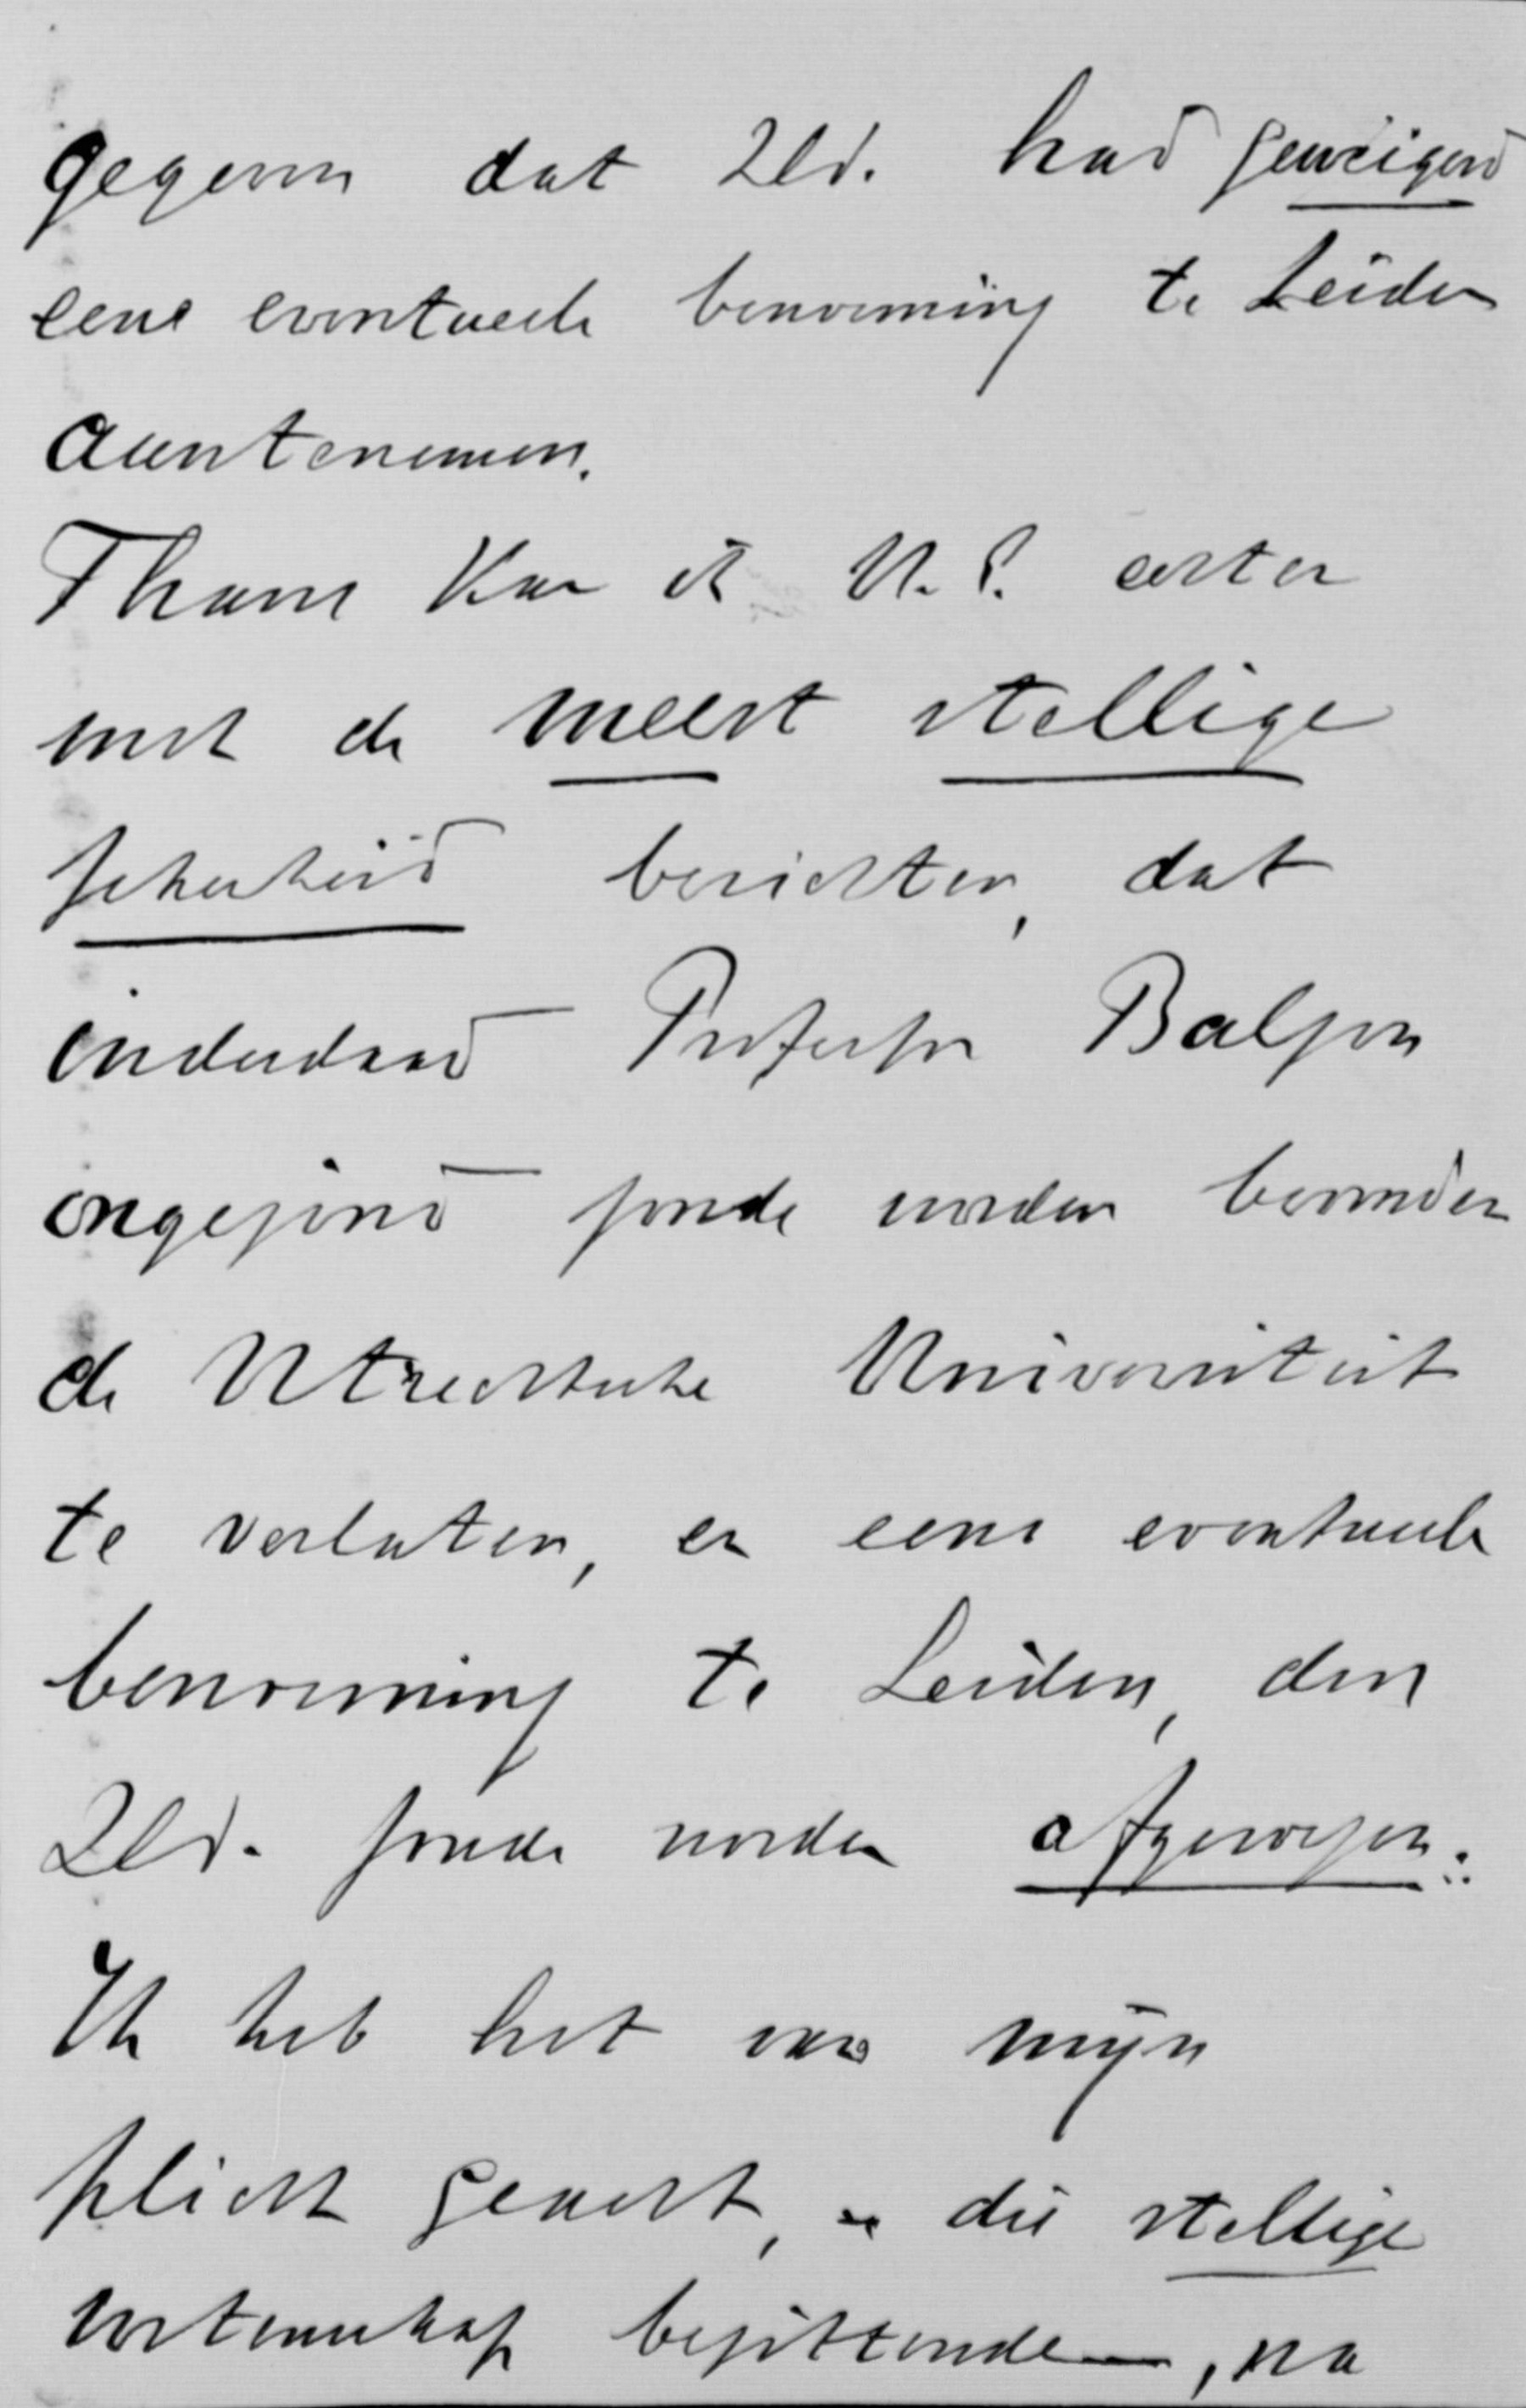 gegeven dat ZEd. had geweigerd
eene eventueele benoeming te Leiden
aantenemen.
Thans kan ik U.E. echter
met de meest stellige
zekerheid berichten, dat
inderdaad Professor Baljon
ongezind zoude worden bevonden
de Utrechtsche Universiteit
te verlaten, en eene eventueele
benoeming te Leiden, door
ZEd. zoude worden afgewezen:
Ik heb het van mijn
plicht geacht, die stellige
wetenschap bezittende, na